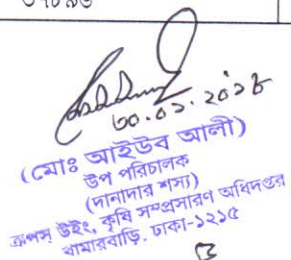 ৩০.০১.২০১৮
(মোঃ আইউব আলী)
উপ পরিচালক
(দানাদার শস্য)
ক্রপস্ উইং, কৃষি সম্প্রসারণ অধিদপ্তর
খামারবাড়ি, ঢাকা-১২১৫